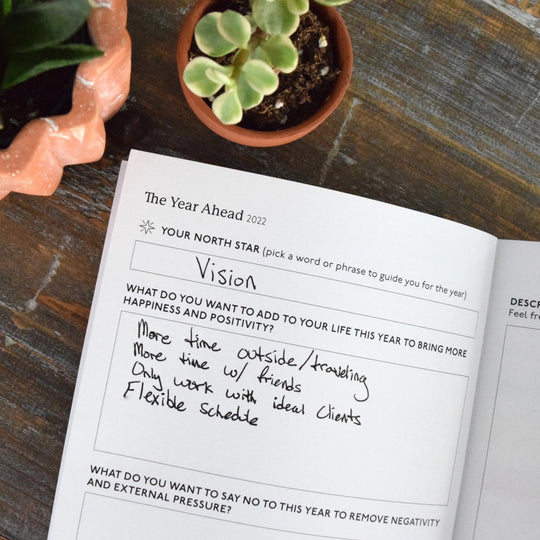 The Year Ahead 2022
YOUR NORTH STAR (pick a word or phrase to guide you for the year)
Vision
WHAT DO YOU WANT TO ADD TO YOUR LIFE THIS YEAR TO BRING MORE
HAPPINESS AND POSITIVITY?
More time outside/traveling
More time w/ friends
Only work with ideal clients
Flexible schedule
WHAT DO YOU WANT TO SAY NO TO THIS YEAR TO REMOVE NEGATIVITY
AND EXTERNAL PRESSURE?
Feel